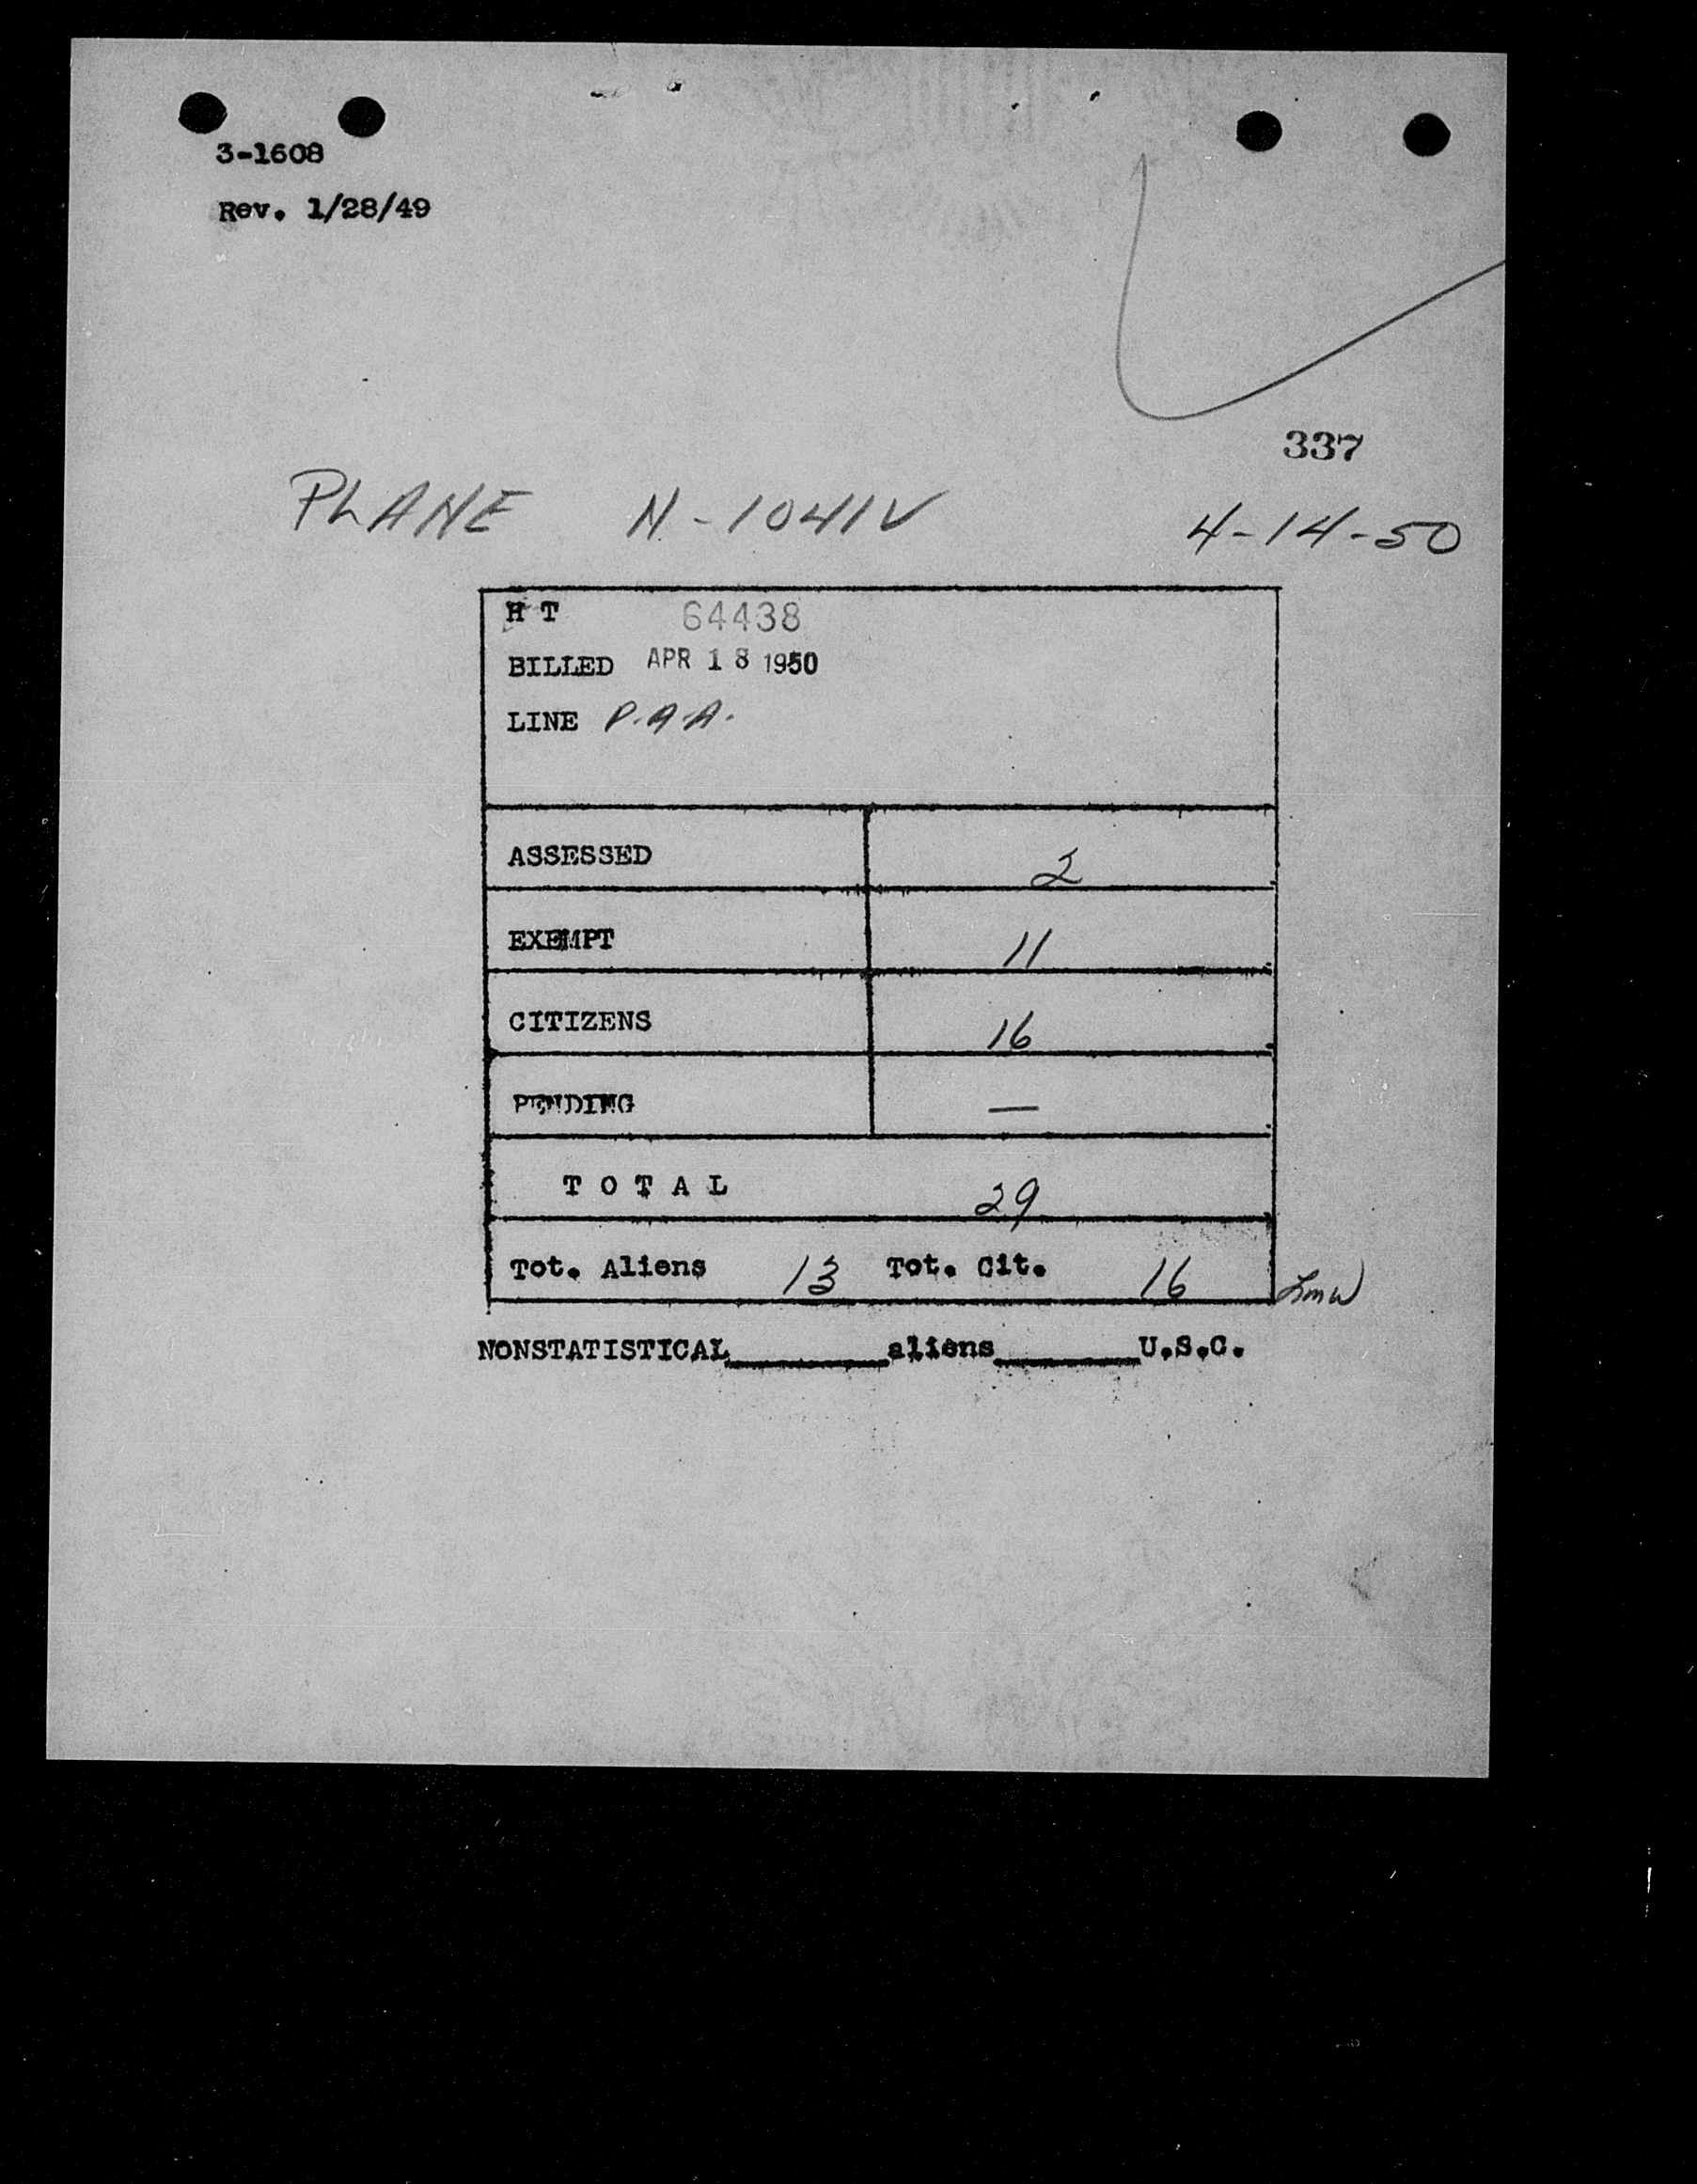 3-1608
Rev. 1/28/49
337
PLANE N-1041V 4-14-50
H T 64438
BILLED APR 18 1950
LINE P.A.A.
ASSESSED 2
EXEMPT 11
CITIZENS 16
PENDING —
TOTAL 29
Tot. Aliens 13 Tot. Cit. 16
NONSTATISTICAL__________aliens_________U.S.C.